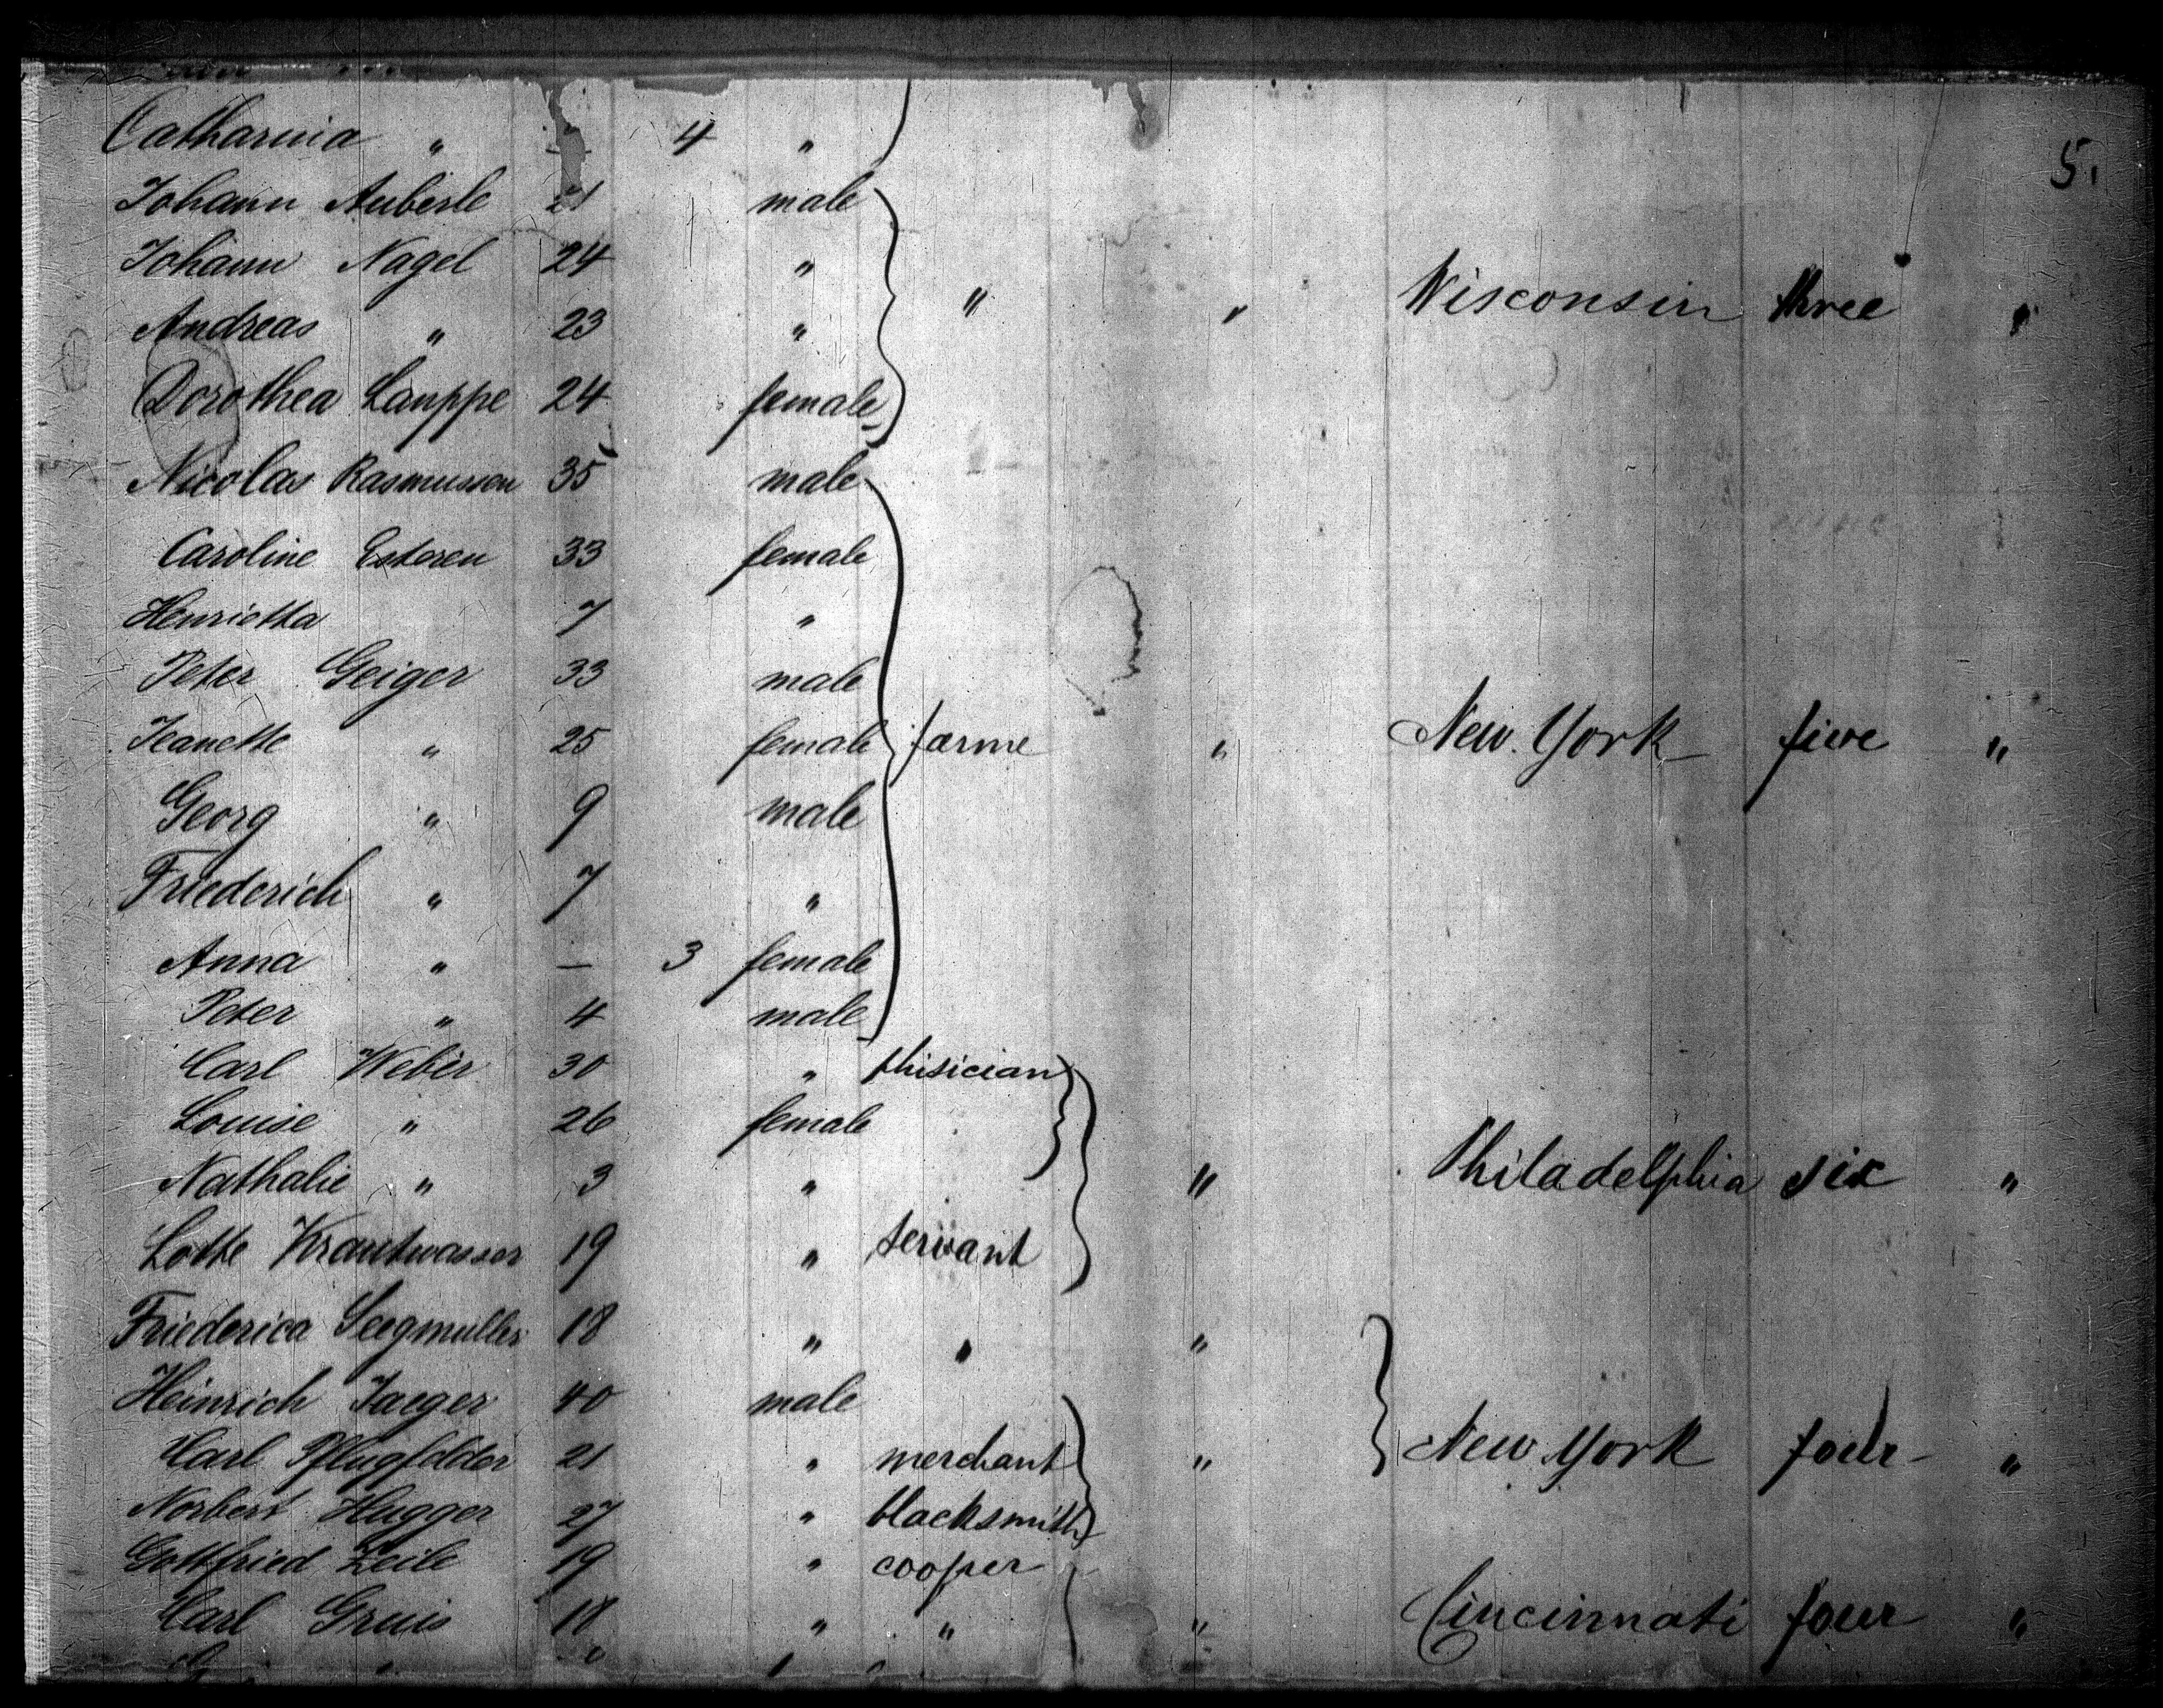 Catharina " — 4 "
5.
Johann Auberle 21 male
Johann Nagel 24 "
Andreas " 23 " " " Wisconsin three "
Dorothea Lauppe 24 female
Nicolas Rasmussen 35 male
Caroline Esteren 33 female
Henrietta 7 "
Peter Geiger 33 male
Jeanette " 25 female farme " New York five "
Georg " 9 male
Friederich " 7 "
Anna " — 3 female
Peter " 4 male
Carl Weber 30 " phisician
Louise " 26 female
Nathalie " 3 " " Philadelphia six "
Lotte Krautwasser 19 " servant
Friederica Seegmuller 18 " " "
Heinrich Jaeger 40 male
Karl Pflugfelder 21 " merchant " New York four "
Norbert Hugger 27 " blacksmith
Gottfried Zeile 19 " cooper
Karl Gruis 18 " " " Cincinnati four "